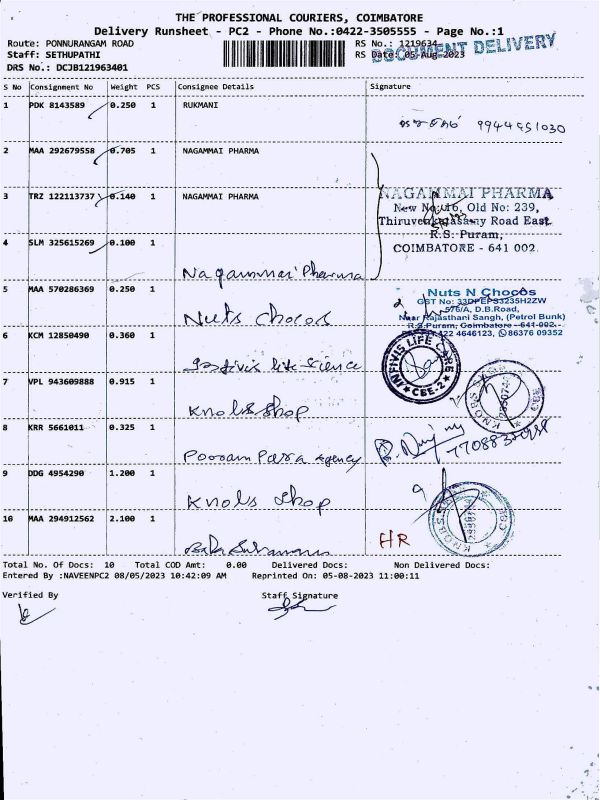 THE PROFESSIONAL COURIERS, COIMBATORE
Delivery Runsheet - PC2 - Phone No.:0422-3505555 - Page No.:1
Route: PONNURANGAM ROAD
Staff: SETHUPATHI
DRS No.: DCJB121963401
RS No.: 1219634
RS Date: 05-Aug-2023
DOCUMENT DELIVERY
S No Consignment No Weight PCS Consignee Details Signature
1 PDK 8143589 0.250 1 RUKMANI
9944951030
2 MAA 292679558 0.705 1 NAGAMMAI PHARMA
3 TRZ 122113737 0.140 1 NAGAMMAI PHARMA
NAGAMMAI PHARMA
New No: 16, Old No: 239,
Thiruvenkatasamy Road East,
R.S. Puram,
COIMBATORE - 641 002.
4 SLM 325615269 0.100 1 Nagammai Pharma
5 MAA 570286369 0.250 1 Nuts Chocos
Nuts N Chocos
GST No: 33DPEPS3235H2ZW
576/A, D.B.Road,
Near Rajasthani Sangh, (Petrol Bunk)
R.S.Puram, Coimbatore - 641 002.
422 4646123, 86376 09352
6 KCM 12850490 0.360 1 Infivis life Science
INFIVIS LIFE CARE
CBE-2
7 VPL 943609888 0.915 1 Knobs Shop
8 KRR 5661011 0.325 1 Agency
9 DDG 4954290 1.200 1 Knobs Shop
10 MAA 294912562 2.100 1
HR
Total No. Of Docs: 10 Total COD Amt: 0.00 Delivered Docs: Non Delivered Docs:
Entered By :NAVEENPC2 08/05/2023 10:42:09 AM Reprinted On: 05-08-2023 11:00:11
Verified By Staff Signature